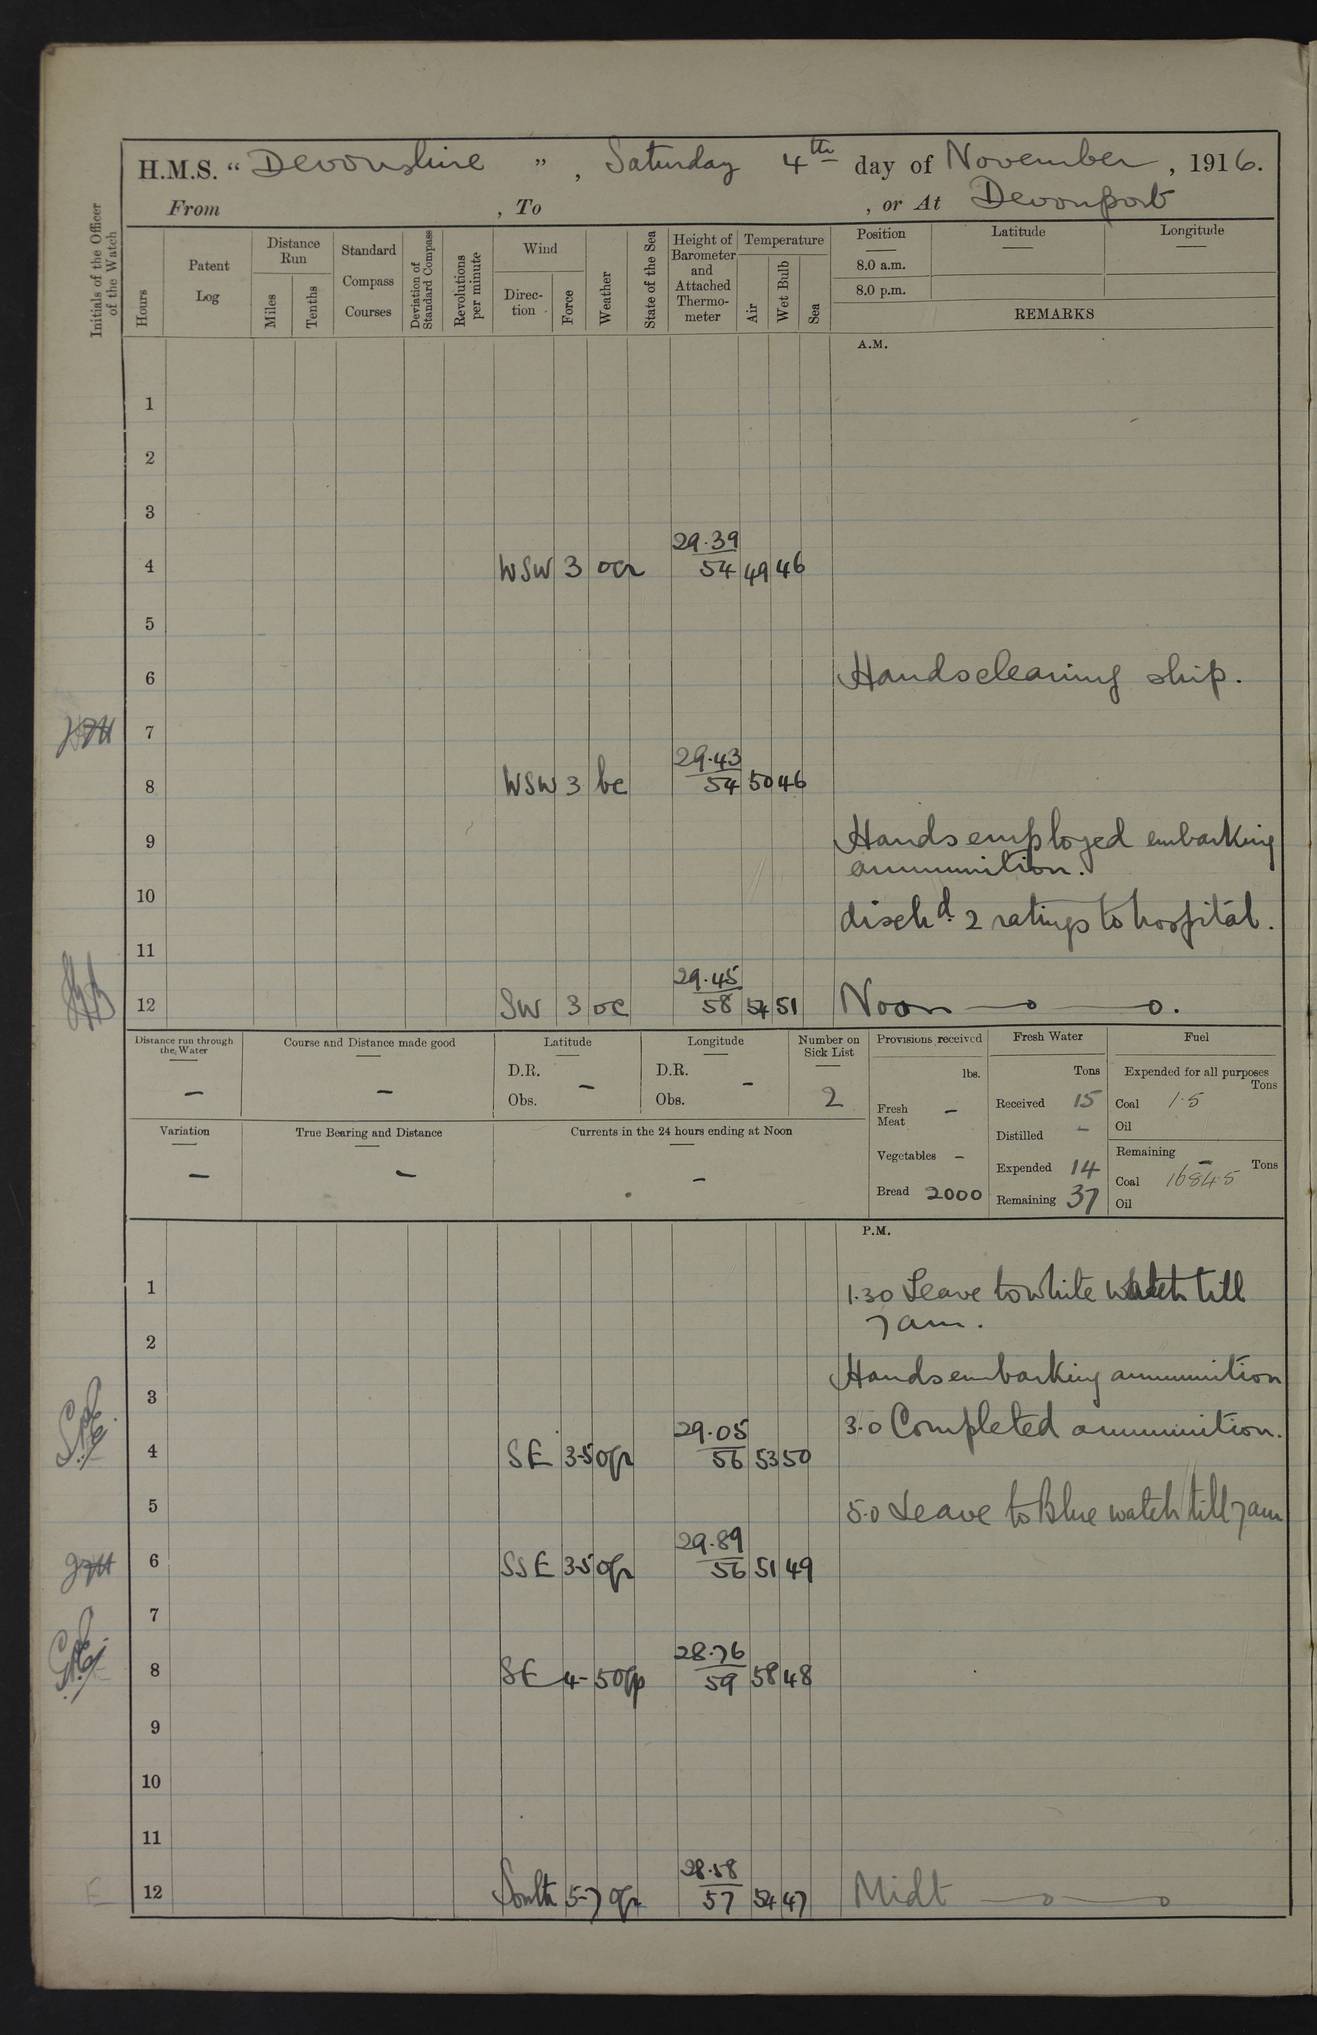 H.M.S. “Devonshire”, Saturday 4th day of November, 1916.
From , To , or At Devonport
Initials of the Officer of the Watch
Hours
Patent Log
Distance Run
Miles
Tenths
Standard Compass Courses
Deviation of Standard Compass
Revolutions per minute
Wind
Direc-tion
Force
Weather
State of the Sea
Height of Barometer and Attached Thermo-meter
Temperature
Air
Wet Bulb
Sea
Position
8.0 a.m.
8.0 p.m.
Latitude
Longitude
REMARKS
A.M.
1
2
3
29.39
4 WSW 3 54 49 46
5
6 Hands cleaning ship.
7
29.43
8 WSW 3 bc 54 50 46
9 Hands employed embarking
ammunition.
10 disch d. 2 ratings to hospital.
11
29.45
12 SW 3 oc 58 54 51 Noon
Distance run through the Water
—
Course and Distance made good
—
Latitude
D.R. —
Obs.
Longitude
D.R. —
Obs.
Number on Sick List
2
Provisions received
lbs.
Fresh Meat —
Vegetables —
Bread 2000
Fresh Water
Tons
Received 15
Distilled -
Expended 14
Remaining 37
Fuel
Expended for all purposes
Tons
Coal 1.5
Oil
Remaining — Tons
Coal 1684.5
Oil
Variation
—
True Bearing and Distance
—
Currents in the 24 hours ending at Noon
—
P.M.
1 1.30 Leave to White Watch till
7 am.
2
Hands embarking ammunition
3
3.0 Completed ammunition.
29.05
4 SE 3-5 56 53 50
5 5.0 Leave to Blue watch till 7 am
29.89
6 SSE 3-5 56 51 49
7
28.76
8 SE 4-5 59 58 48
9
10
11
28.58
12 South 5-7 57 54 47 Midt